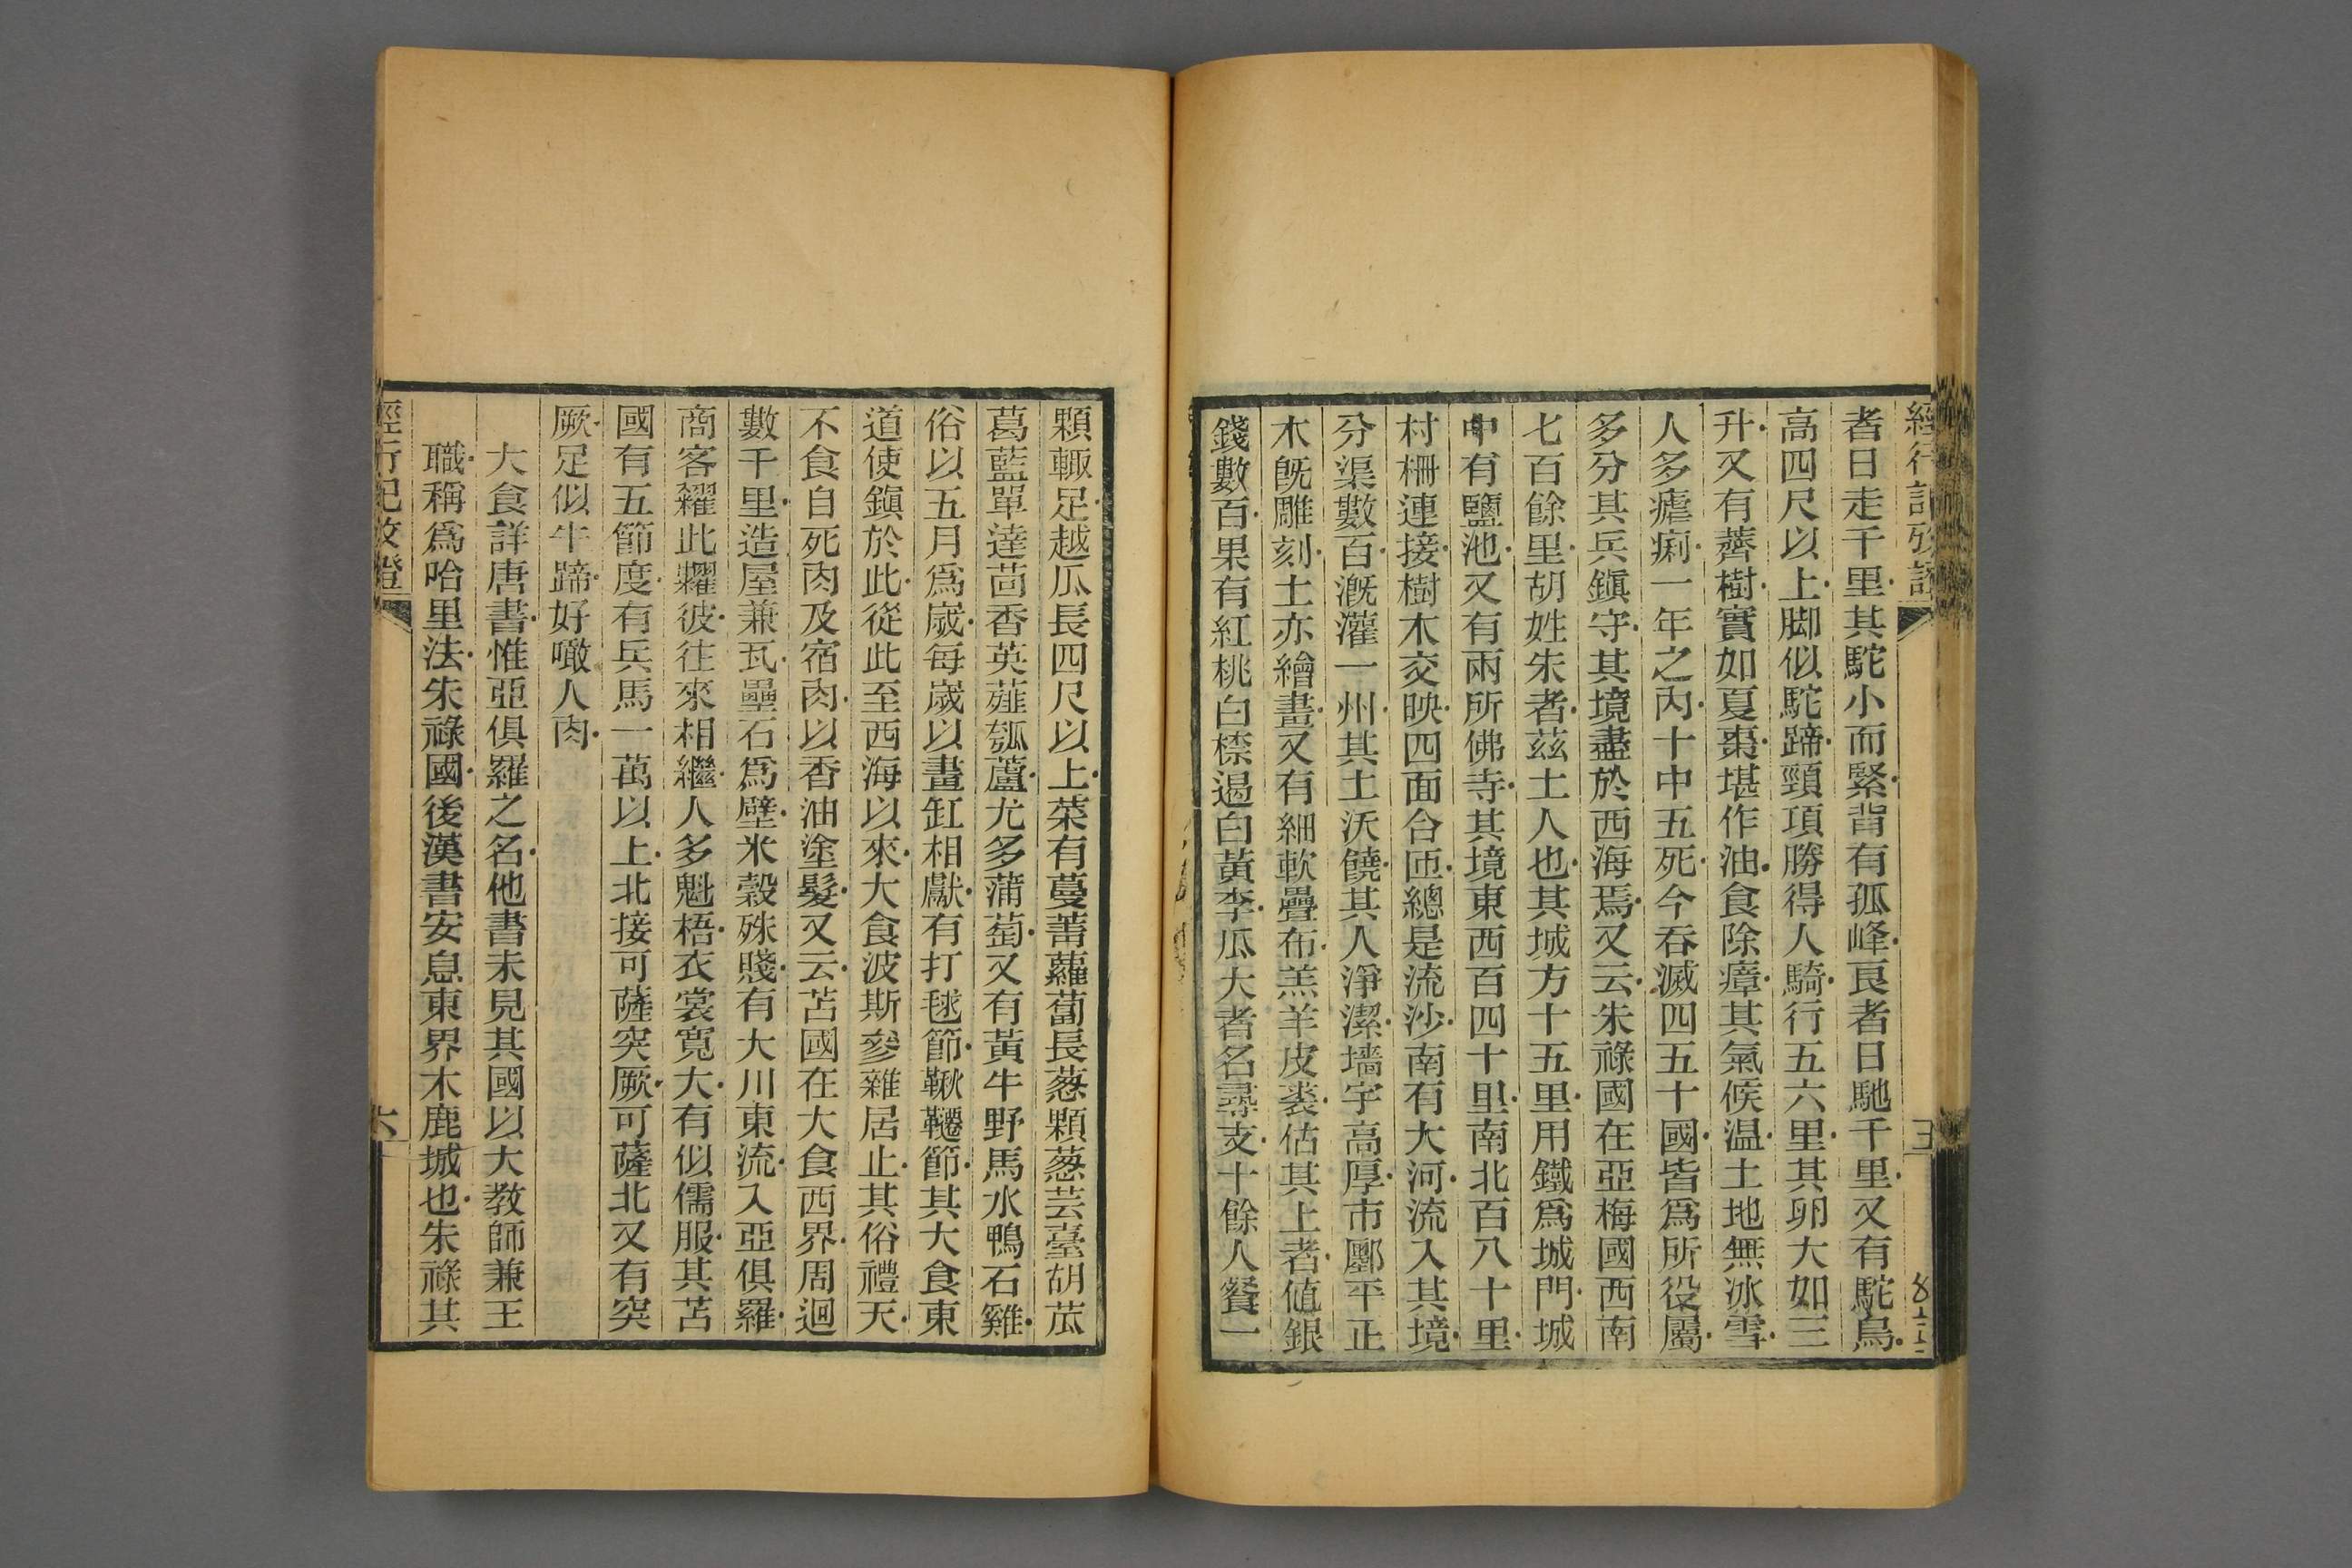 經行記攷證
者日走千里其駝小而緊背有孤峰良者日馳千里又有駝鳥
高四尺以上脚似駝蹄頸項勝得人騎行五六里其卵大如三
升又有薺樹實如夏棗堪作油食除瘴其氣候温土地無冰雪
人多瘧痢一年之內十中五死今吞滅四五十國皆爲所役屬
多分其兵鎭守其境盡於西海焉又云朱祿國在亞梅國西南
七百餘里胡姓朱者茲土人也其城方十五里用鐵爲城門城
中有鹽池又有兩所佛寺其境東西百四十里南北百八十里
村柵連接樹木交映四面合匝總是流沙南有大河流入其境
分渠數百漑灌一州其土沃饒其人淨潔墻宇高厚市鄽平正
木旣雕刻土亦繪畫又有細軟疊布羔羊皮裘估其上者値銀
錢數百果有紅桃白㮈遏白黃李瓜大者名尋支十餘人餐一
顆輙足越瓜長四尺以上菜有蔓菁蘿蔔長葱顆葱芸臺胡苽
葛藍單達茴香英薤瓠蘆尤多蒲萄又有黃牛野馬水鴨石雞
俗以五月爲歲每歲以畫缸相獻有打毬節鞦韆節其大食東
道使鎭於此從此至西海以來大食波斯參雜居止其俗禮天
不食自死肉及宿肉以香油塗髮又云苫國在大食西界周迴
數千里造屋兼瓦壘石爲壁米穀殊賤有大川東流入亞俱羅
商客糴此糶彼往來相繼人多魁梧衣裳寬大有似儒服其苫
國有五節度有兵馬一萬以上北接可薩突厥可薩北又有突
厥足似牛蹄好噉人肉
大食詳唐書惟亞俱羅之名他書未見其國以大敎師兼王
職稱爲哈里法朱祿國後漢書安息東界木鹿城也朱祿其
經行記攷證
六